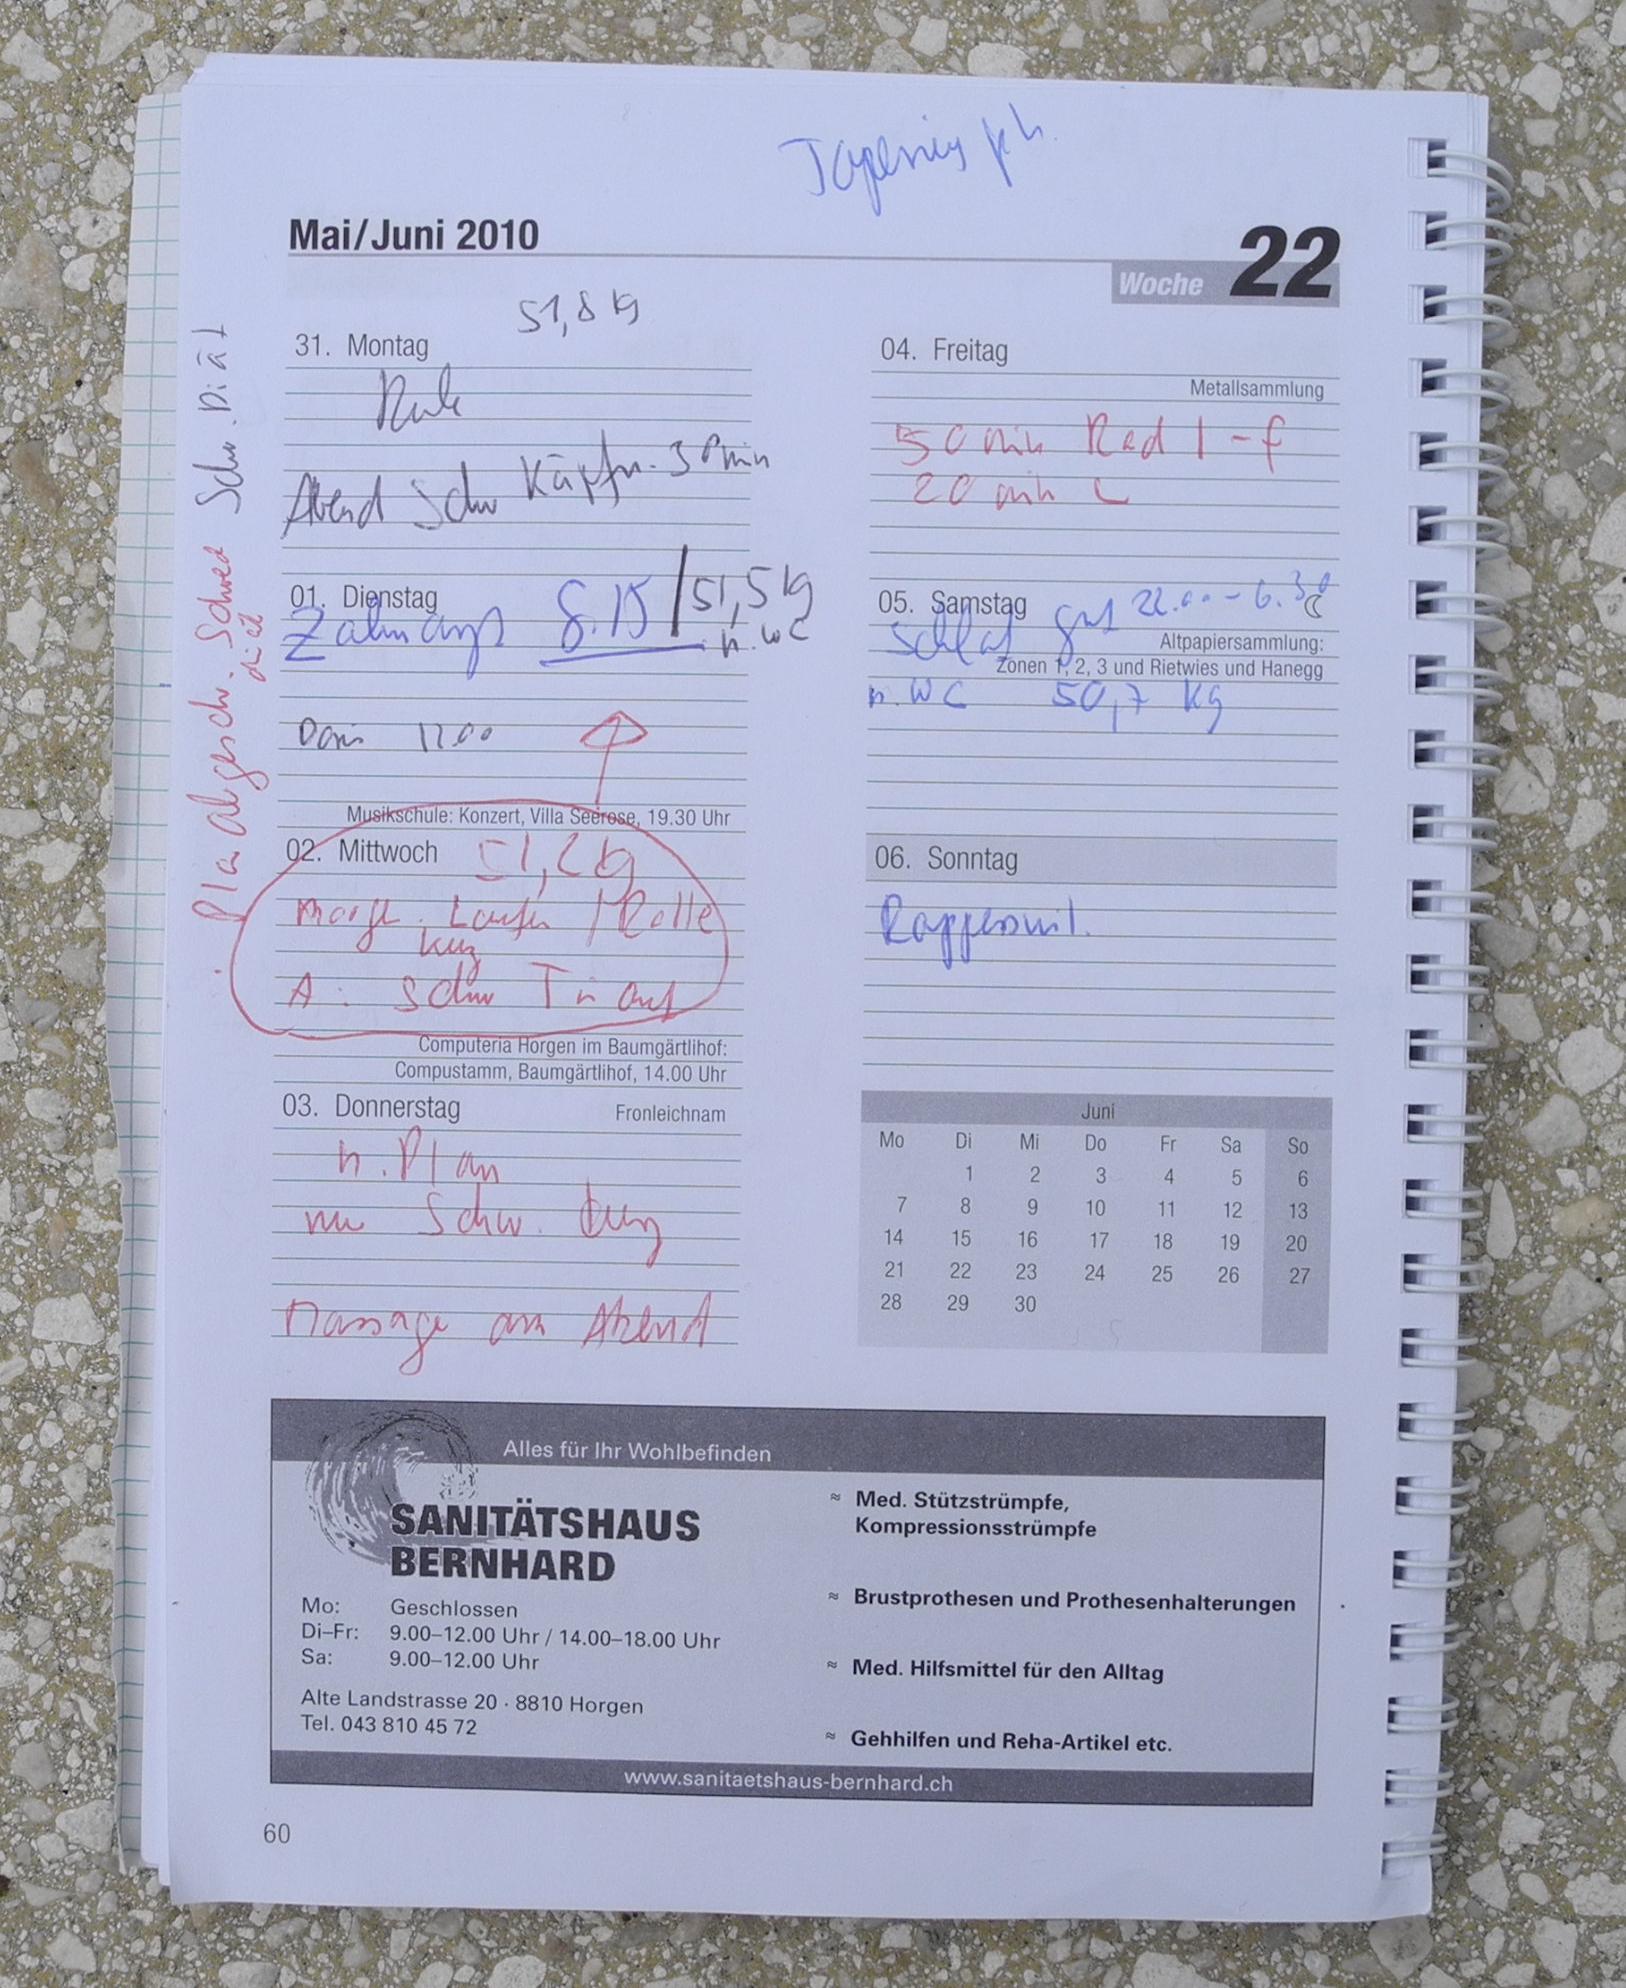 Mai/Juni 2010
Woche 22
51,8 kg
31. Montag
Ruhe
Abend Schw Käpfn. 30 min
01. Dienstag
Zahnarzt 8.15 / 51,5 kg
n. WC
Musikschule: Konzert, Villa Seerose, 19.30 Uhr
02. Mittwoch 51,2 kg
Morge. Laufen / Rolle
kurz
A: Schw
Computeria Horgen im Baumgärtlihof:
Compustamm, Baumgärtlihof, 14.00 Uhr
03. Donnerstag
Fronleichnam
n. Plan
nur Schw. kurz
Massage am Abend
Schw. Diät
04. Freitag
Metallsammlung
50 min Rad l-f
20 min L
05. Samstag
Schlaf gut 22.00 - 6.30
Altpapiersammlung:
Zonen 1, 2, 3 und Rietwies und Hanegg
n. WC 50,7 kg
06. Sonntag
Rapperswil.
Juni
Mo Di Mi Do Fr Sa So
1 2 3 4 5 6
7 8 9 10 11 12 13
14 15 16 17 18 19 20
21 22 23 24 25 26 27
28 29 30
Alles für Ihr Wohlbefinden
SANITÄTSHAUS
BERNHARD
Mo: Geschlossen
Di–Fr: 9.00–12.00 Uhr / 14.00–18.00 Uhr
Sa: 9.00–12.00 Uhr
Alte Landstrasse 20 · 8810 Horgen
Tel. 043 810 45 72
≈ Med. Stützstrümpfe,
Kompressionsstrümpfe
≈ Brustprothesen und Prothesenhalterungen
≈ Med. Hilfsmittel für den Alltag
≈ Gehhilfen und Reha-Artikel etc.
www.sanitaetshaus-bernhard.ch
60